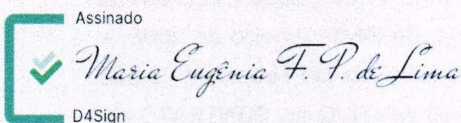 Assinado
Maria Eugênia F. P. de Lima
D4Sign